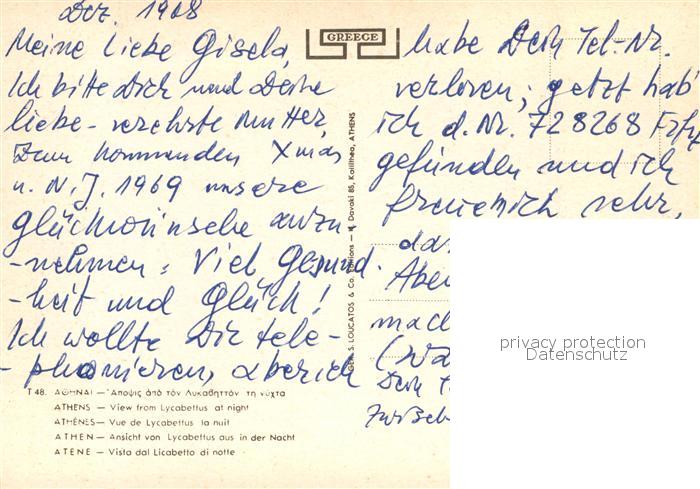 Dez. 1968
Meine liebe Gisela,
Ich bitte Dich und Deine
liebe-verehrte Mutter,
zum kommenden Xmas
u. N.J. 1969 unsere
Glückwünsche anzu-
-nehmen: Viel Gesund-
-heit und Glück!
Ich wollte Dir tele-
-phonieren, aber ich
GREECE
habe Dein Tel-Nr.
verloren; jetzt hab'
ich d. Nr. 728268
gefunden und ich
freue mich sehr,
das
Aber
mach
Dein T
T 48. ΑΘΗΝΑΙ — Ἄποψις ἀπὸ τὸν Λυκαβηττὸν τη νύχτα
ATHENS — View from Lycabettus at night
ATHÈNES — Vue de Lycabettus la nuit
ATHEN — Ansicht von Lycabettus aus in der Nacht
ATENE — Vista dal Licabetto di notte
S. LOUCATOS & Co. Editions — Davaki 85, Kallithea, ATHENS
privacy protection
Datenschutz